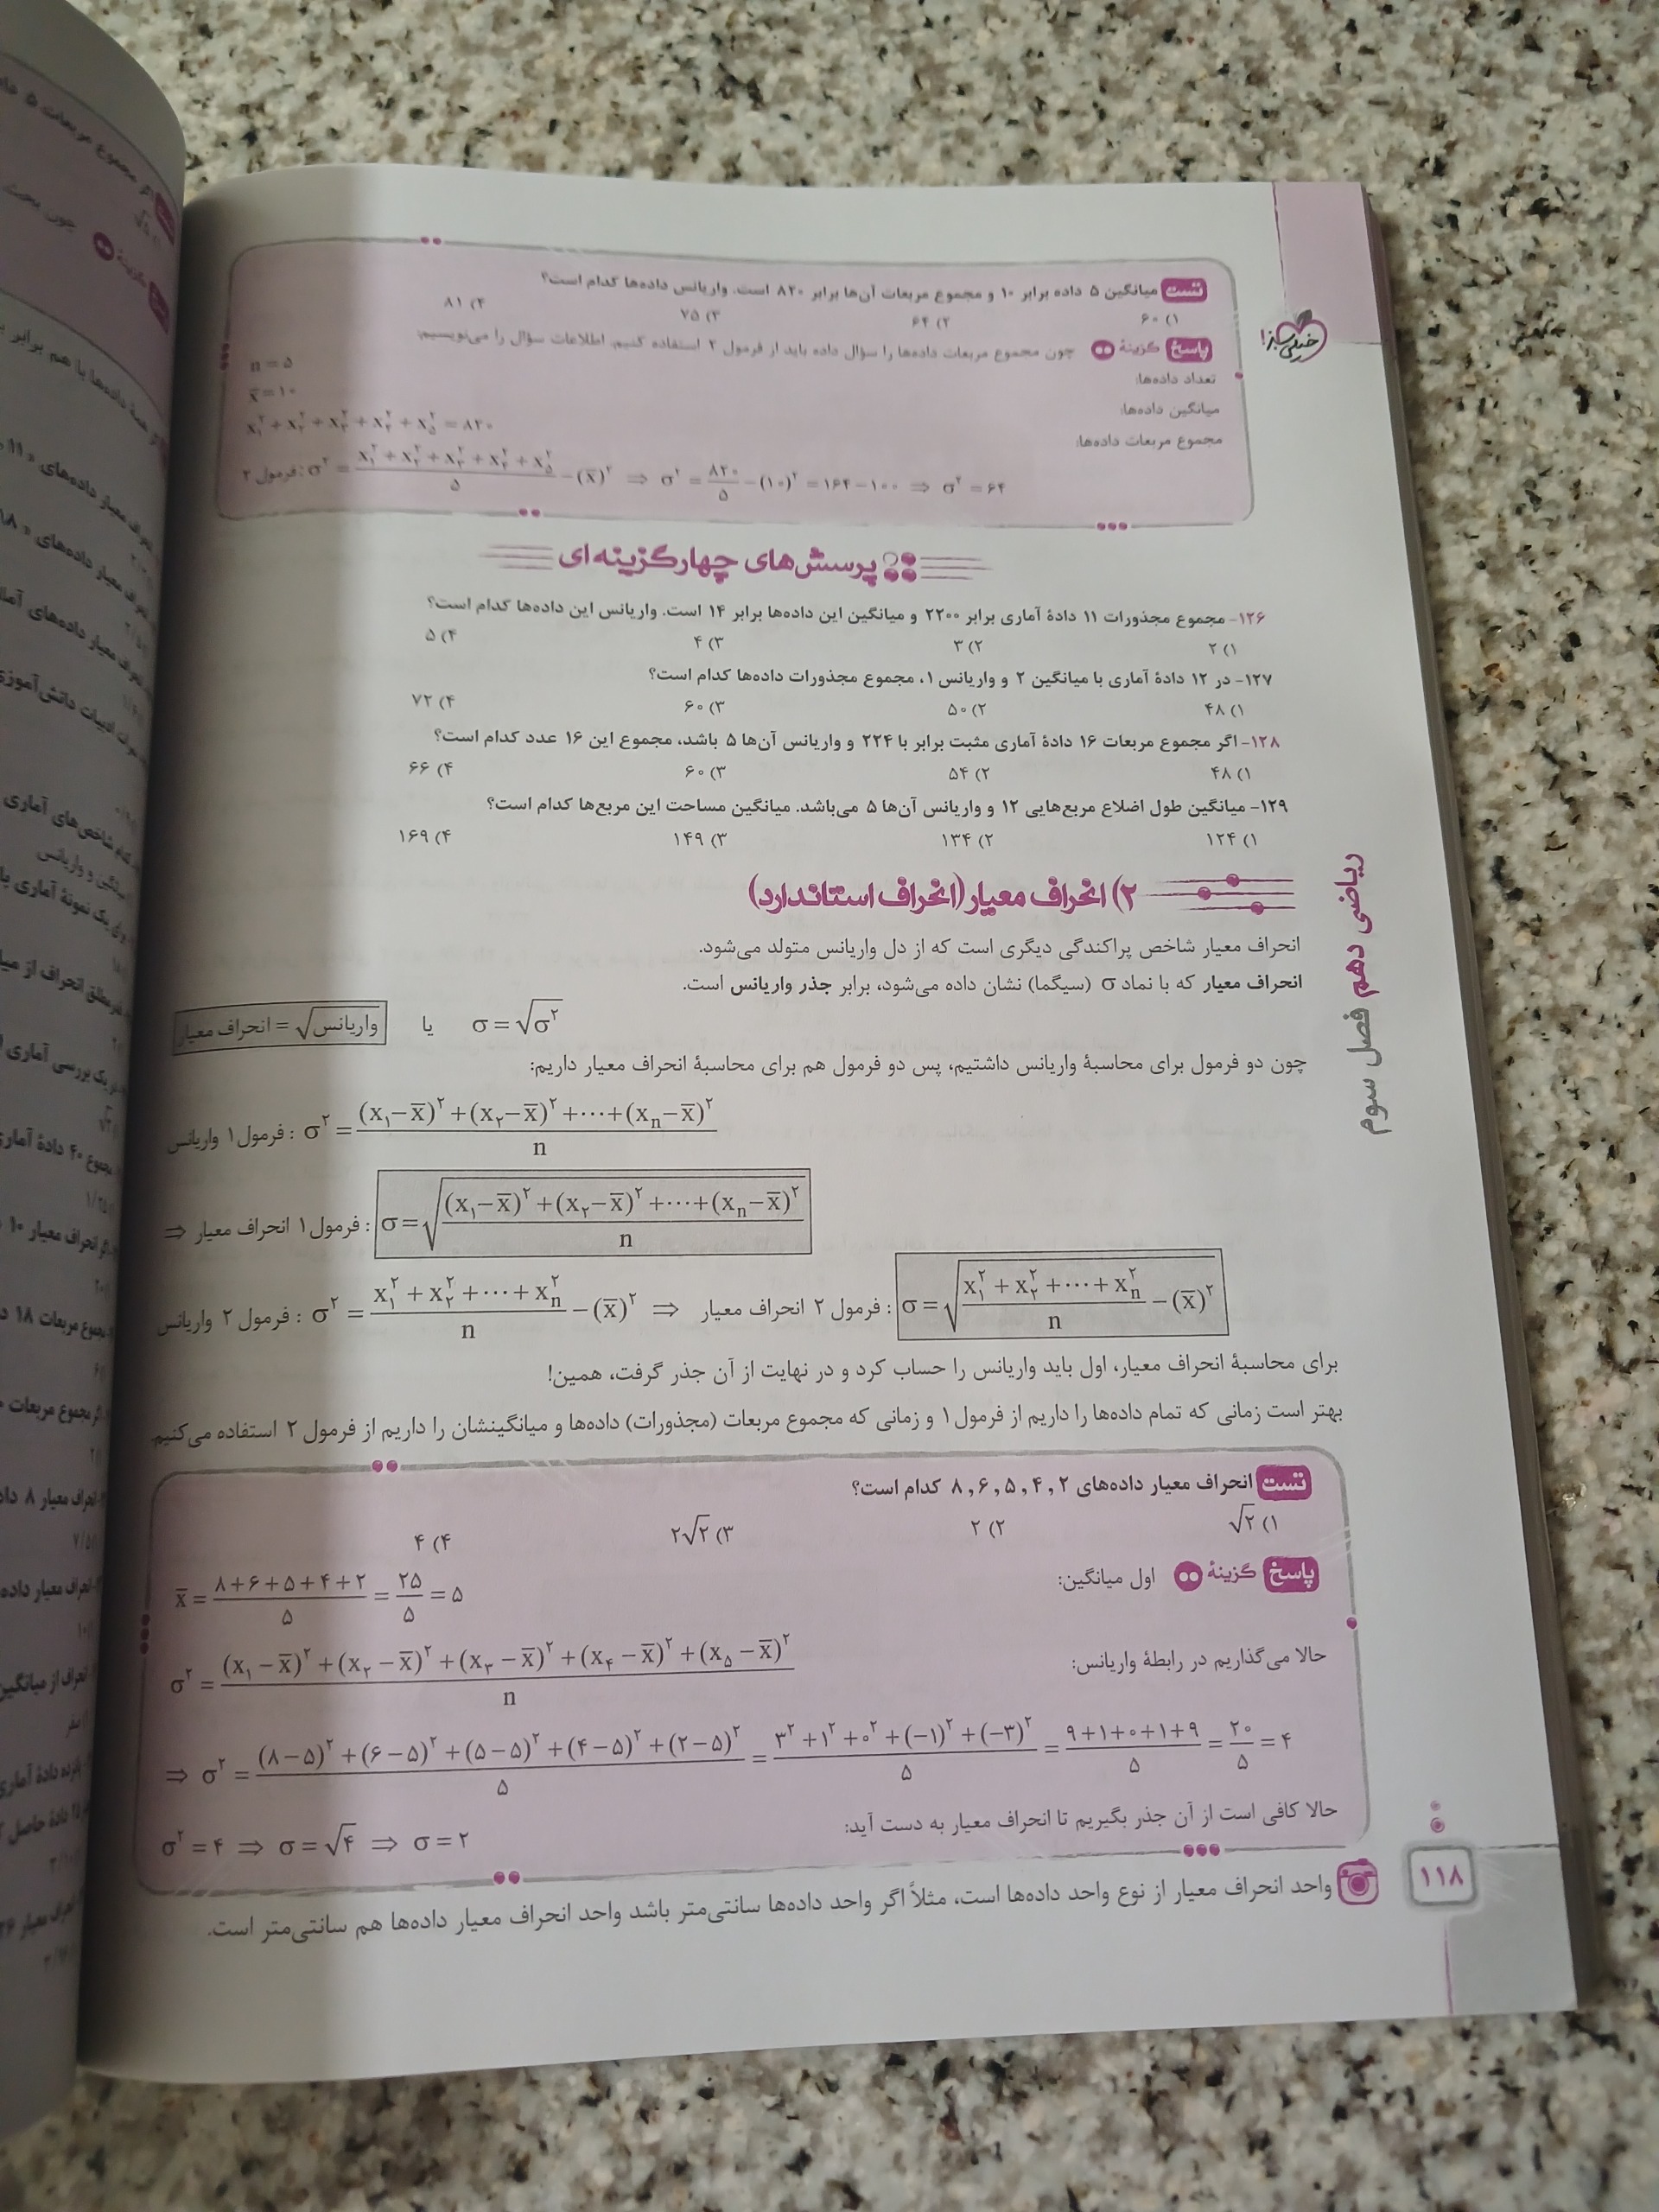 تست میانگین ۵ داده برابر ۱۰ و مجموع مربعات آن‌ها برابر ۸۲۰ است. واریانس داده‌ها کدام است؟
۱) ۶۰ ۲) ۶۴ ۳) ۷۵ ۴) ۸۱
پاسخ گزینهٔ چون مجموع مربعات داده‌ها را سؤال داده باید از فرمول ۲ استفاده کنیم. اطلاعات سؤال را می‌نویسیم:
تعداد داده‌ها: n = ۵
میانگین داده‌ها: x̄ = ۱۰
مجموع مربعات داده‌ها: x₁² + x₂² + x₃² + x₄² + x₅² = ۸۲۰
فرمول ۲: σ² = (x₁² + x₂² + x₃² + x₄² + x₅²)/۵ − (x̄)² ⇒ σ² = ۸۲۰/۵ − (۱۰)² = ۱۶۴ − ۱۰۰ ⇒ σ² = ۶۴
پرسش‌های چهارگزینه‌ای
خیلی سبز!
۱۲۶- مجموع مجذورات ۱۱ دادهٔ آماری برابر ۲۲۰۰ و میانگین این داده‌ها برابر ۱۴ است. واریانس این داده‌ها کدام است؟
۱) ۲ ۲) ۳ ۳) ۴ ۴) ۵
۱۲۷- در ۱۲ دادهٔ آماری با میانگین ۲ و واریانس ۱، مجموع مجذورات داده‌ها کدام است؟
۱) ۴۸ ۲) ۵۰ ۳) ۶۰ ۴) ۷۲
۱۲۸- اگر مجموع مربعات ۱۶ دادهٔ آماری مثبت برابر با ۲۲۴ و واریانس آن‌ها ۵ باشد، مجموع این ۱۶ عدد کدام است؟
۱) ۴۸ ۲) ۵۴ ۳) ۶۰ ۴) ۶۶
۱۲۹- میانگین طول اضلاع مربع‌هایی ۱۲ و واریانس آن‌ها ۵ می‌باشد. میانگین مساحت این مربع‌ها کدام است؟
۱) ۱۲۴ ۲) ۱۳۴ ۳) ۱۴۹ ۴) ۱۶۹
۲) انحراف معیار (انحراف استاندارد)
انحراف معیار شاخص پراکندگی دیگری است که از دل واریانس متولد می‌شود.
انحراف معیار که با نماد σ (سیگما) نشان داده می‌شود، برابر جذر واریانس است.
σ = √σ² یا واریانس√ = انحراف معیار
چون دو فرمول برای محاسبهٔ واریانس داشتیم، پس دو فرمول هم برای محاسبهٔ انحراف معیار داریم:
فرمول ۱ واریانس : σ² = ((x₁−x̄)² + (x₂−x̄)² + ⋯ + (xₙ−x̄)²)/n
⇒ فرمول ۱ انحراف معیار : σ = √(((x₁−x̄)² + (x₂−x̄)² + ⋯ + (xₙ−x̄)²)/n)
فرمول ۲ واریانس : σ² = (x₁² + x₂² + ⋯ + xₙ²)/n − (x̄)² ⇒ فرمول ۲ انحراف معیار : σ = √((x₁² + x₂² + ⋯ + xₙ²)/n − (x̄)²)
برای محاسبهٔ انحراف معیار، اول باید واریانس را حساب کرد و در نهایت از آن جذر گرفت، همین!
بهتر است زمانی که تمام داده‌ها را داریم از فرمول ۱ و زمانی که مجموع مربعات (مجذورات) داده‌ها و میانگینشان را داریم از فرمول ۲ استفاده می‌کنیم
تست انحراف معیار داده‌های ۲ , ۴ , ۵ , ۶ , ۸ کدام است؟
۱) √۲ ۲) ۲ ۳) ۲√۲ ۴) ۴
پاسخ گزینهٔ اول میانگین:
x̄ = (۸+۶+۵+۴+۲)/۵ = ۲۵/۵ = ۵
حالا می‌گذاریم در رابطهٔ واریانس:
σ² = ((x₁−x̄)² + (x₂−x̄)² + (x₃−x̄)² + (x₄−x̄)² + (x₅−x̄)²)/n
⇒ σ² = ((۸−۵)² + (۶−۵)² + (۵−۵)² + (۴−۵)² + (۲−۵)²)/۵ = (۳² + ۱² + ۰² + (−۱)² + (−۳)²)/۵ = (۹+۱+۰+۱+۹)/۵ = ۲۰/۵ = ۴
حالا کافی است از آن جذر بگیریم تا انحراف معیار به دست آید:
σ² = ۴ ⇒ σ = √۴ ⇒ σ = ۲
واحد انحراف معیار از نوع واحد داده‌ها است، مثلاً اگر واحد داده‌ها سانتی‌متر باشد واحد انحراف معیار داده‌ها هم سانتی‌متر است.
ریاضی دهم فصل سوم
۱۱۸